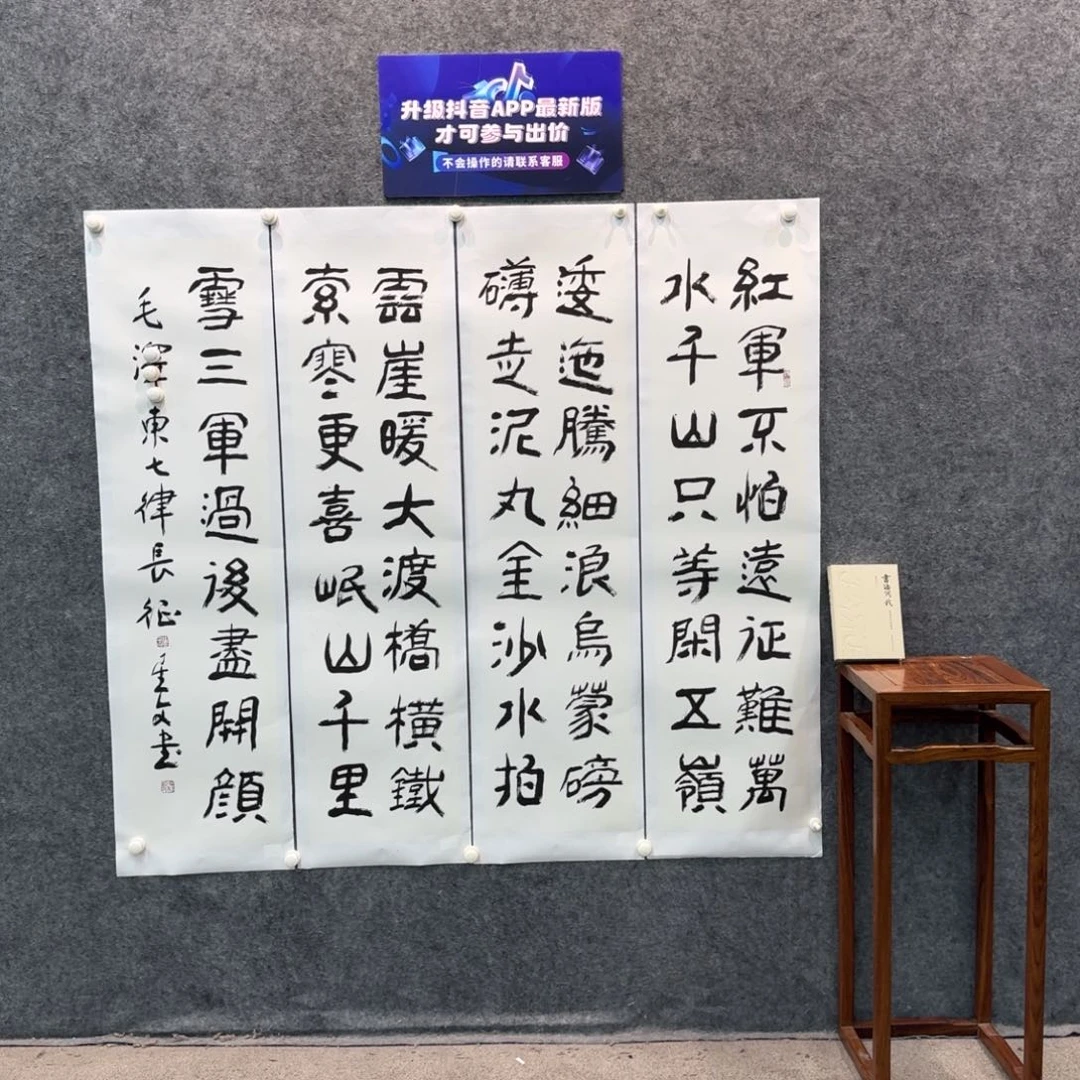 升级抖音APP最新版
才可参与出价
不会操作的请联系客服
紅軍不怕遠征難萬
水千山只等閑五嶺
逶迤騰細浪烏蒙磅
礴走泥丸金沙水拍
雲崖暖大渡橋橫鐵
索寒更喜岷山千里
雪三軍過後盡開顏
毛澤東七律長征